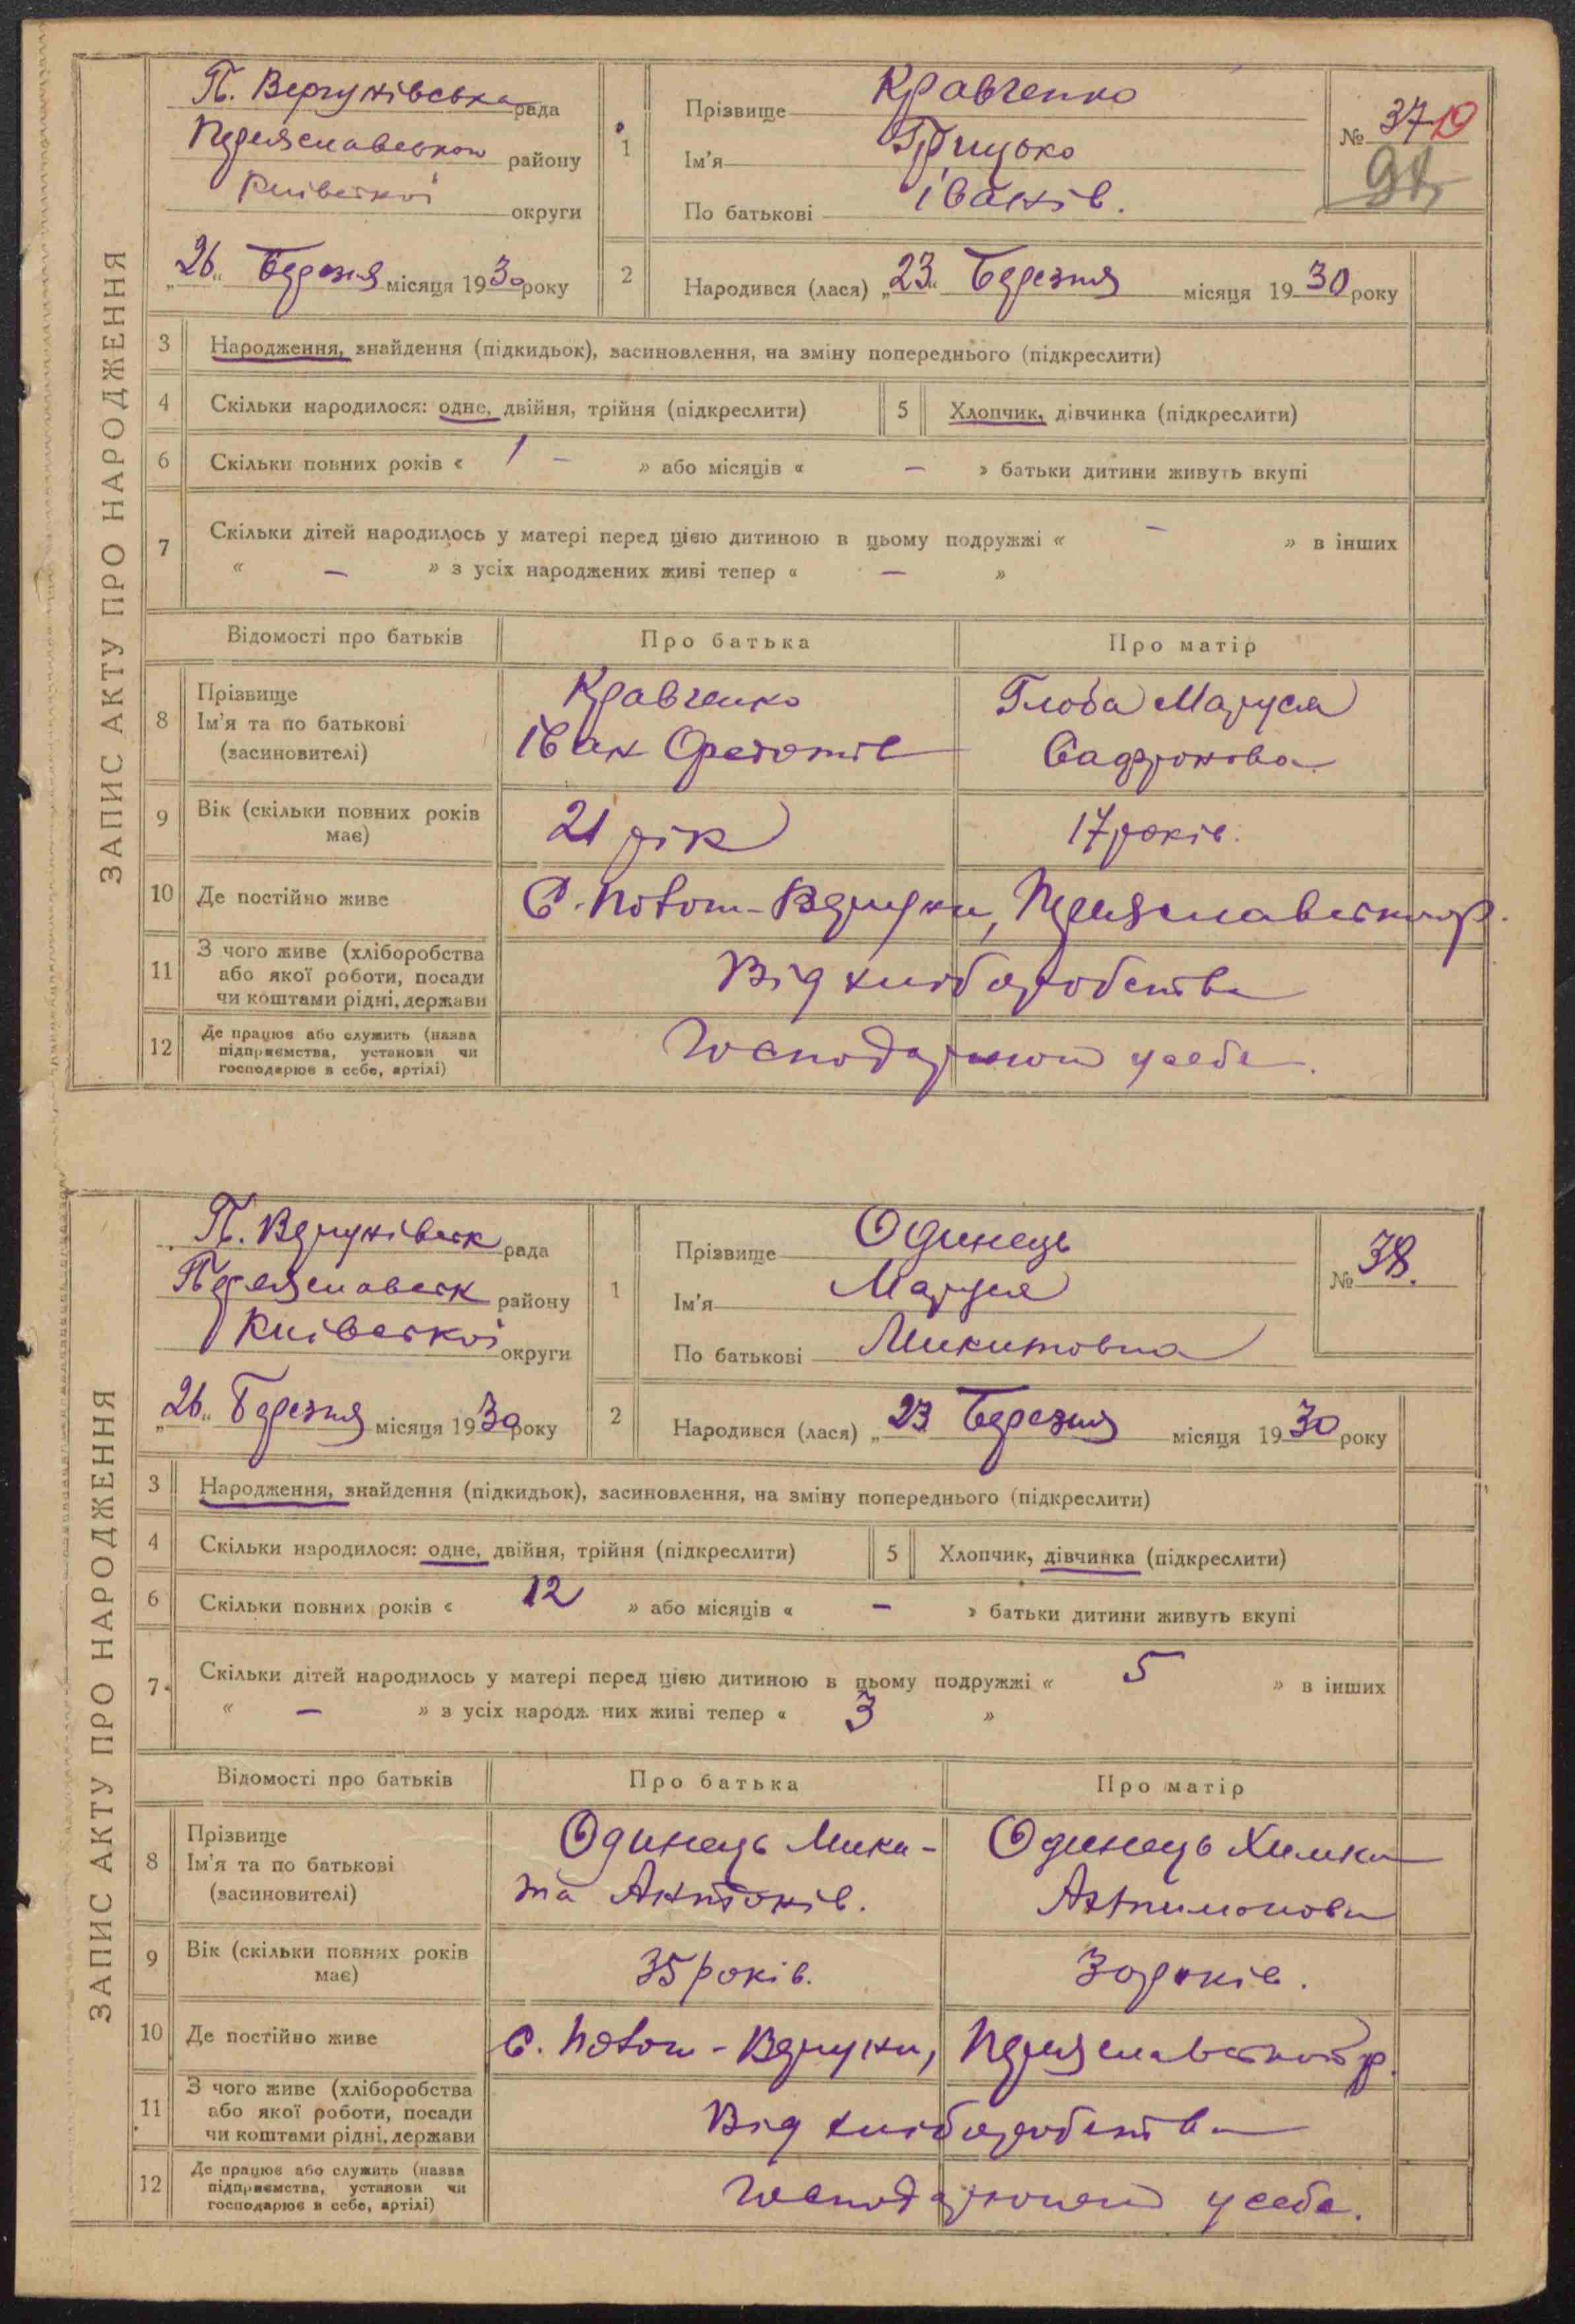 ЗАПИС АКТУ ПРО НАРОДЖЕННЯ
П. Вергунівська рада
Переяславськои району
Київської округи
„26“ Березня місяця 1930 року
1
Прізвище Кравченко
Ім'я Грицько
По батькові Іванів.
№ 37 19
91
2
Народився (лася) „23“ Березня місяця 1930 року
3 Народження, знайдення (підкидьок), засиновлення, на зміну попереднього (підкреслити)
4 Скільки народилося: одне, двійня, трійня (підкреслити) 5 Хлопчик, дівчинка (підкреслити)
6 Скільки повних років « 1 – » або місяців « – » батьки дитини живуть вкупі
7 Скільки дітей народилось у матері перед цією дитиною в цьому подружжі « – » в інших
« – » з усіх народжених живі тепер « – »
Відомості про батьків Про батька Про матір
8 Прізвище
Ім'я та по батькові
(засиновителі)
Кравченко
Іван
Глоба Маруся
9 Вік (скільки повних років має)
21 рік
17 років.
10 Де постійно живе
С. Поток-Вергуни, Переяславськ р.
11 З чого живе (хліборобства
або якої роботи, посади
чи коштами рідні, держави
Від хліборобства
12 Де працює або служить (назва
підприємства, установи чи
господарює в себе, артілі)
Господарюют у себе.
ЗАПИС АКТУ ПРО НАРОДЖЕННЯ
П. Вергунівськ рада
Переяславськ району
Київської округи
„26“ Березня місяця 1930 року
1
Прізвище Одинець
Ім'я Маруся
По батькові Микитовна
№ 38.
2
Народився (лася) „23 Березня місяця 1930 року
3 Народження, знайдення (підкидьок), засиновлення, на зміну попереднього (підкреслити)
4 Скільки народилося: одне, двійня, трійня (підкреслити) 5 Хлопчик, дівчинка (підкреслити)
6 Скільки повних років « 12 » або місяців « – » батьки дитини живуть вкупі
7 Скільки дітей народилось у матері перед цією дитиною в цьому подружжі « 5 » в інших
« – » з усіх народж них живі тепер « 3 »
Відомості про батьків Про батька Про матір
8 Прізвище
Ім'я та по батькові
(засиновителі)
Одинець Мики-
та Антонів.
Одинець Химка
9 Вік (скільки повних років має)
35 років.
30 років.
10 Де постійно живе
С. Поток - Вергуни, Переяславськ р.
11 З чого живе (хліборобства
або якої роботи, посади
чи коштами рідні, держави
Від хліборобства
12 Де працює або служить (назва
підприємства, установи чи
господарює в себе, артілі)
Господарюют у себе.